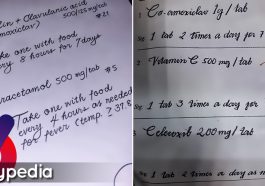 lin + Clavulanic acid
oxiclav) 500/125 mg/tab
#21
ake one with food
very 8 hours for 7 days
aracetamol 500 mg/tab #5
Take one with food
every 4 hours as needed
for fever (temp ≥ 37.8
ypedia
1 Co-amoxiclav 1g / tab
1 tab 2 times a day for 7
2 Vitamin C 500 mg / tab
1 tab 3 times a day for
3 Celecoxib 200 mg / tab
1 tab 2 times a day as n